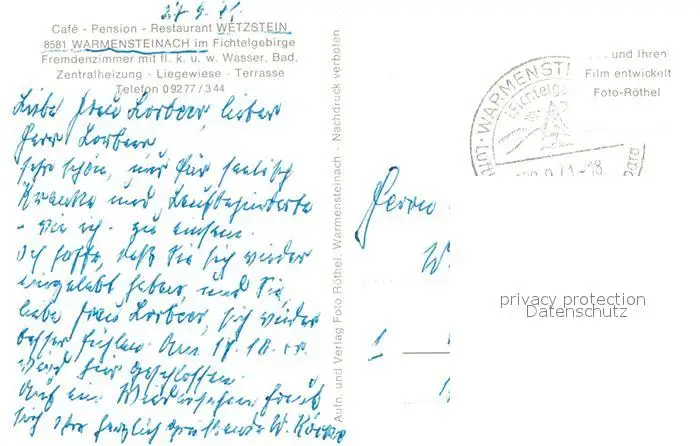 27.9.71.
Café - Pension - Restaurant WETZSTEIN
8581 WARMENSTEINACH im Fichtelgebirge
Fremdenzimmer mit fl. k. u. w. Wasser, Bad,
Zentralheizung - Liegewiese - Terrasse
Telefon 09277/344
Liebe Frau Lorbeer, lieber
Herr Lorbeer,
sehr schön, nur für seelisch
Kranke und Laufbehinderte
- wie ich - zu einsam.
Ich hoffe, daß Sie sich wieder
eingelebt haben, und Sie,
liebe Frau Lorbeer, sich wieder
besser fühlen. Am 17.10.
wird hier geschlossen.
Auf ein Wiedersehen freut
sich Ihre herzlich grüßende W.
Aufn. und Verlag Foto Röthel, Warmensteinach - Nachdruck verboten
und Ihren
Film entwickelt
Foto-Röthel
WARMENST
Fichtelge
9.71-18
Luft
Herrn
W.
1
privacy protection
Datenschutz